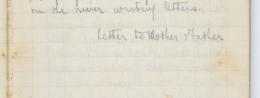 on the river writing letters.
Letter to Mother & Father